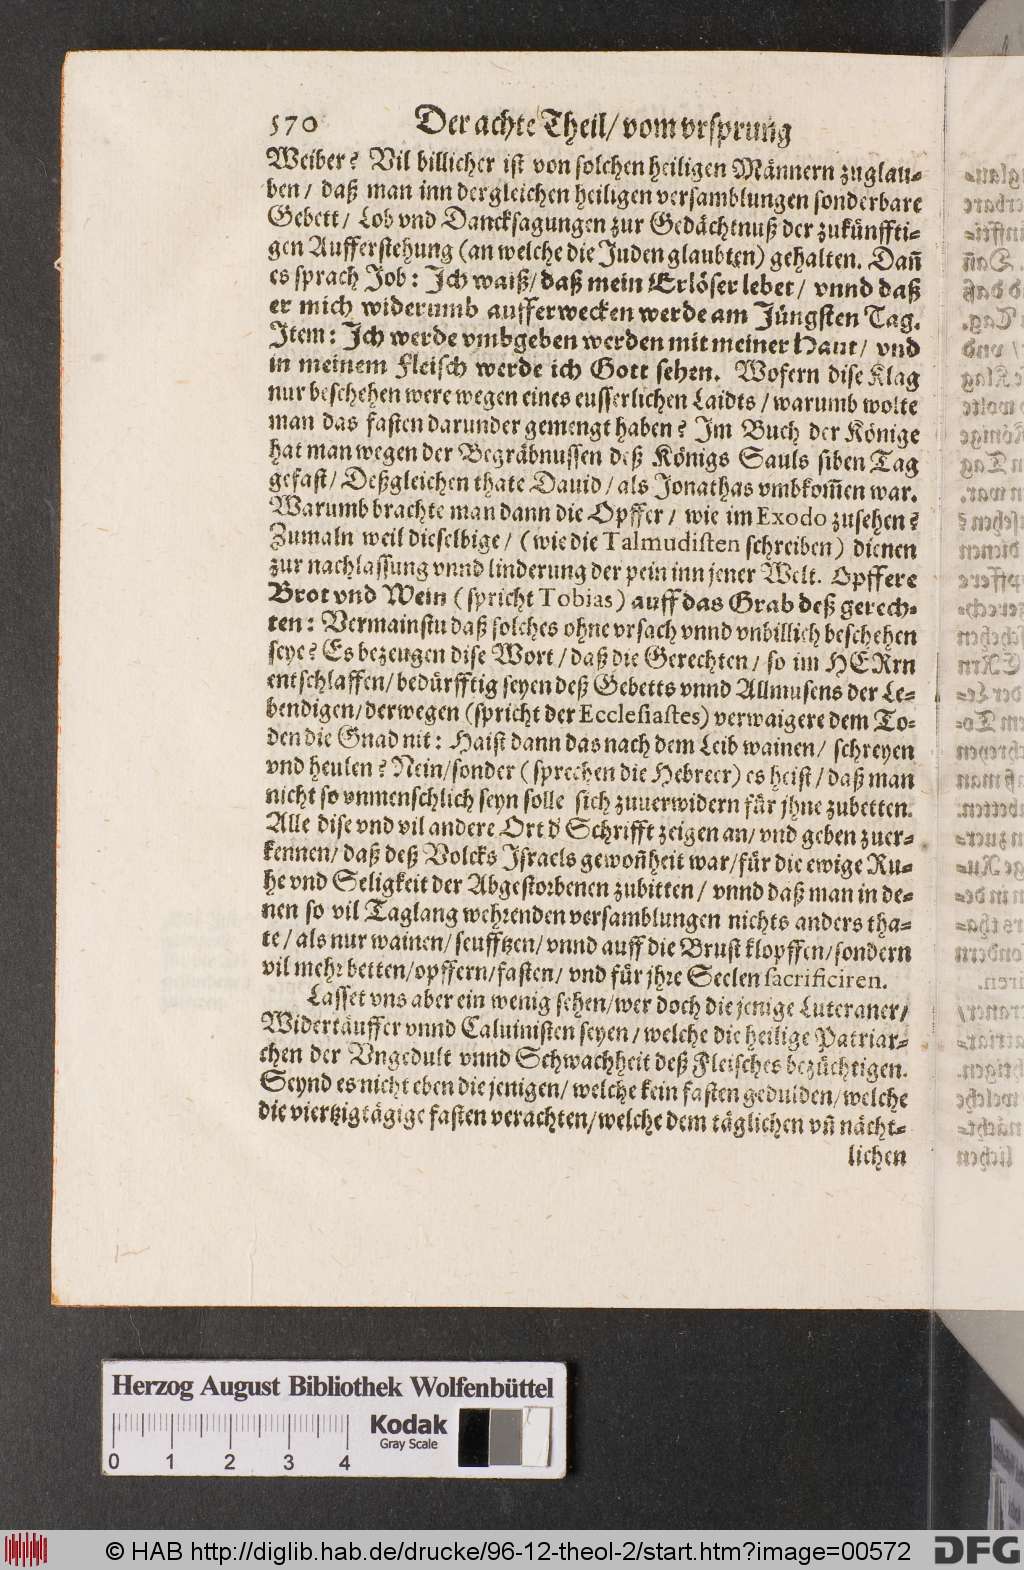 570 Der achte Theil/ vom vrsprung
Weiber? Vil billicher ist von solchen heiligen Männern zuglau-
ben/ daß man inn dergleichen heiligen versamblungen sonderbare
Gebett/ Lob vnd Dancksagungen zur Gedächtnuß der zukünffti-
gen Aufferstehung (an welche die Juden glaubten) gehalten. Dañ
es sprach Job: Ich waiß/ daß mein Erlöser lebet/ vnnd daß
er mich widerumb aufferwecken werde am Jüngsten Tag.
Item: Ich werde vmbgeben werden mit meiner Haut/ vnd
in meinem Fleisch werde ich Gott sehen. Wofern dise Klag
nur beschehen were wegen eines eusserlichen Laidts/ warumb wolte
man das fasten darunder gemengt haben? Im Buch der Könige
hat man wegen der Begräbnussen deß Königs Sauls siben Tag
gefast/ Deßgleichen thate Dauid/ als Jonathas vmbkom̃en war.
Warumb brachte man dann die Opffer/ wie im Exodo zusehen?
Zumaln weil dieselbige/ (wie die Talmudisten schreiben) dienen
zur nachlassung vnnd linderung der pein inn jener Welt. Opffere
Brot vnd Wein (spricht Tobias) auff das Grab deß gerech-
ten: Vermainstu daß solches ohne vrsach vnnd vnbillich beschehen
seye? Es bezeugen dise Wort/ daß die Gerechten/ so im HERrn
entschlaffen/ bedürfftig seyen deß Gebetts vnnd Allmusens der Le-
bendigen/ derwegen (spricht der Ecclesiastes) verwaigere dem To-
den die Gnad nit: Haist dann das nach dem Leib wainen/ schreyen
vnd heulen? Nein/ sonder (sprechen die Hebreer) es heist/ daß man
nicht so vnmenschlich seyn solle sich zuuerwidern für jhne zubetten.
Alle dise vnd vil andere Ort d' Schrifft zeigen an/ vnd geben zuer-
kennen/ daß deß Volcks Israels gewoñheit war/ für die ewige Ru-
he vnd Seligkeit der Abgestorbenen zubitten/ vnnd daß man in de-
nen so vil Taglang wehrenden versamblungen nichts anders tha-
te/ als nur wainen/ seufftzen/ vnnd auff die Brust klopffen/ sondern
vil mehr betten/ opffern/ fasten/ vnd für jhre Seelen sacrificiren.
Lasset vns aber ein wenig sehen/ wer doch die jenige Luteraner/
Widertäuffer vnnd Caluinisten seyen/ welche die heilige Patriar-
chen der Vngedult vnnd Schwachheit deß Fleisches bezüchtigen.
Seynd es nicht eben die jenigen/ welche kein fasten gedulden/ welche
die viertzigtägige fasten verachten/ welche dem täglichen vñ nächt-
lichen
Herzog August Bibliothek Wolfenbüttel
Kodak
Gray Scale
0 1 2 3 4
© HAB http://diglib.hab.de/drucke/96-12-theol-2/start.htm?image=00572
DFG